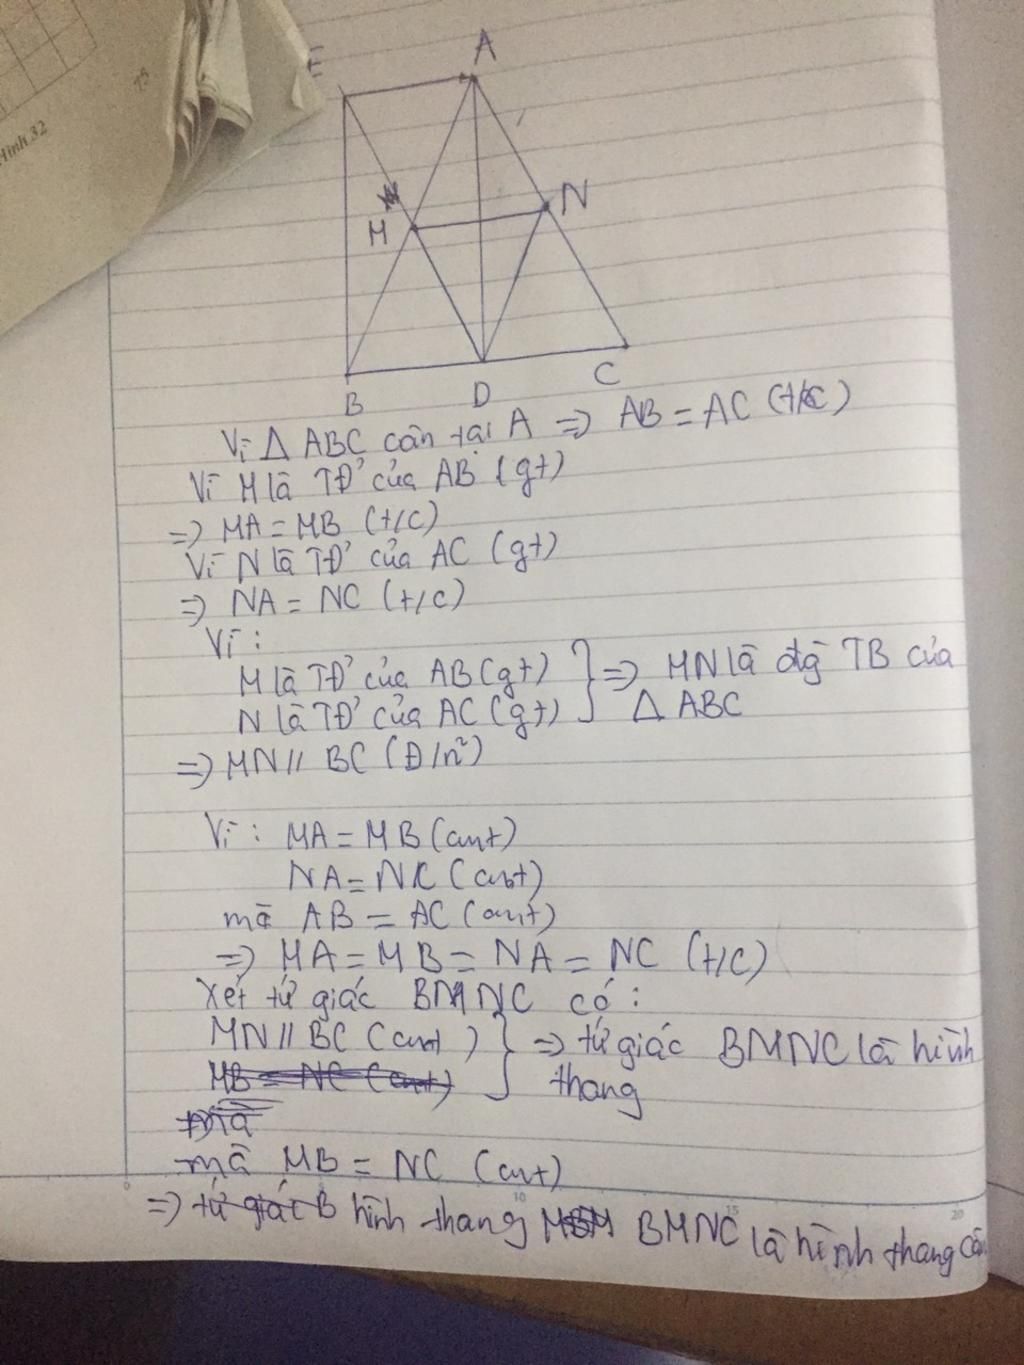 Hình 32
E
A
M
N
B
D
C
Vì Δ ABC cân tại A => AB = AC (t/c)
Vì M là TĐ' của AB (gt)
=> MA = MB (t/c)
Vì N là TĐ' của AC (gt)
=> NA = NC (t/c)
Vì :
M là TĐ' của AB (gt) } => MN là đg TB của
N là TĐ' của AC (gt) Δ ABC
=> MN // BC (Đ/n²)
Vì : MA = MB (cmt)
NA = NC (cmt)
mà AB = AC (cmt)
=> MA = MB = NA = NC (t/c)
Xét tứ giác BMNC có :
MN // BC (cmt) } => tứ giác BMNC là hình
MB = NC (cmt) thang
mà
mà MB = NC (cmt)
=> tứ giác B hình thang BMNC là hình thang cân
0 10 15 20